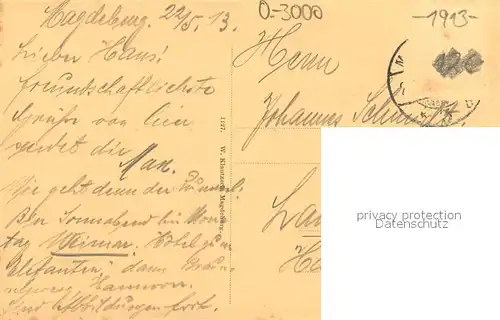 Magdeburg. 22/5. 13.
O.-3000
-1913-
Lieber Hans!
Freundschaftlichste
Grüße von hier
sendet dir
Max.
Wie geht denn der
Bin Sonnabend bis Mon-
tag Weimar. Hotel zum
Elefanten, dann Braun-
schweig, Hannover.
Sind Abbildungen fort.
1127. W. Klautzsch, Magdeburg.
Herrn
Johannes Schmidt.
privacy protection
www.oldthing.de